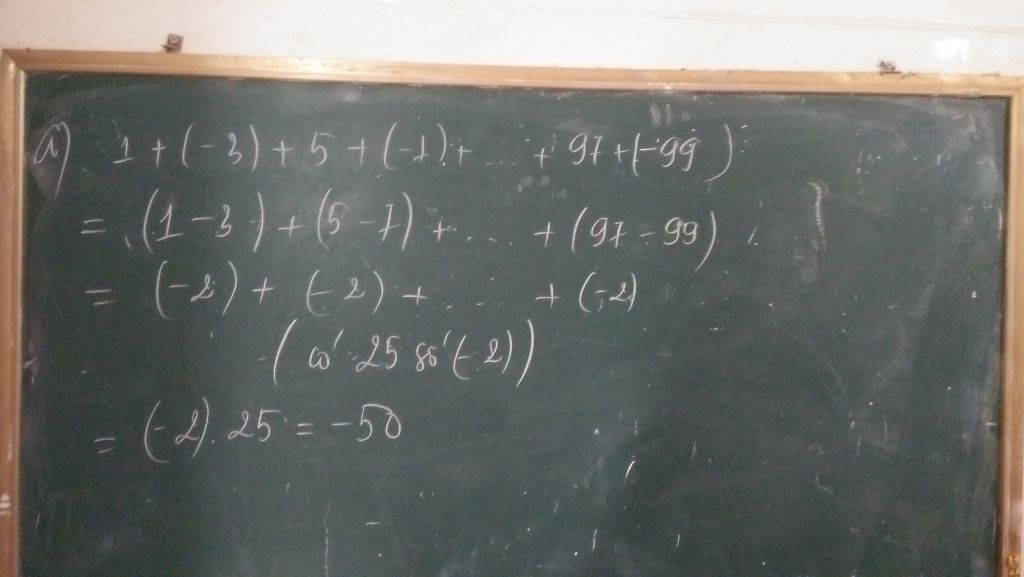 a) 1 + (-3) + 5 + (-7) + ... + 97 + (-99)
= (1 - 3) + (5 - 7) + .... + (97 - 99)
= (-2) + (-2) + .... + (-2)
(có 25 số (-2))
= (-2). 25 = -50